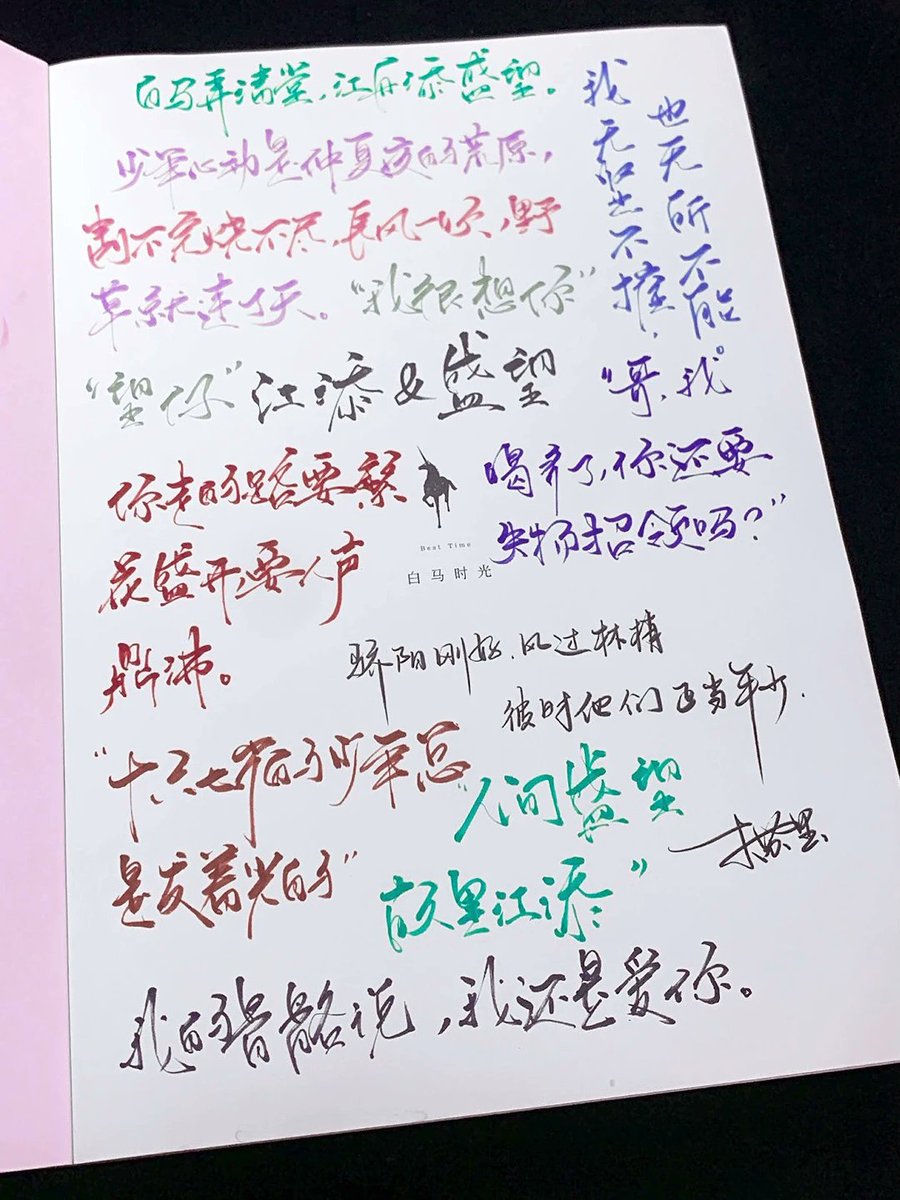 白马弄清堂,江月添盛望。
少年心动是仲夏夜的荒原,
割不完烧不尽,长风一吹,野
草就连了天。"我很想你"
"望仔"江添&盛望
我无坚不摧,
也无所不能。
"哥,我
喝齐了,你还要
失物招领吗?"
你走的路要繁
花盛开,要人声
鼎沸。
Beat Time
白马时光
骄阳刚好,风过林梢
彼时他们正当年少.
木苏里
"十六七岁的少年总
是发着光的"
"人间盛望
故里江添"
我的骨骼说,我还是爱你。